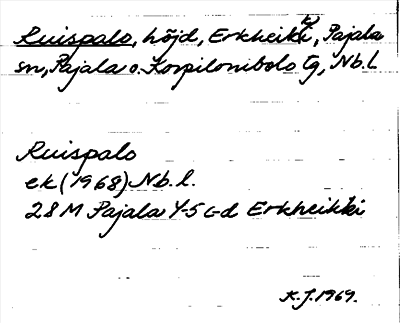 Ruispalo, höjd, Erkheiki, Pajala
sn, Pajala o. Korpilombolo tg, Nb.l.
Ruispalo
ek (1968) Nb.l.
28 M Pajala 4-5 c-d Erkheikki
K.J. 1969.